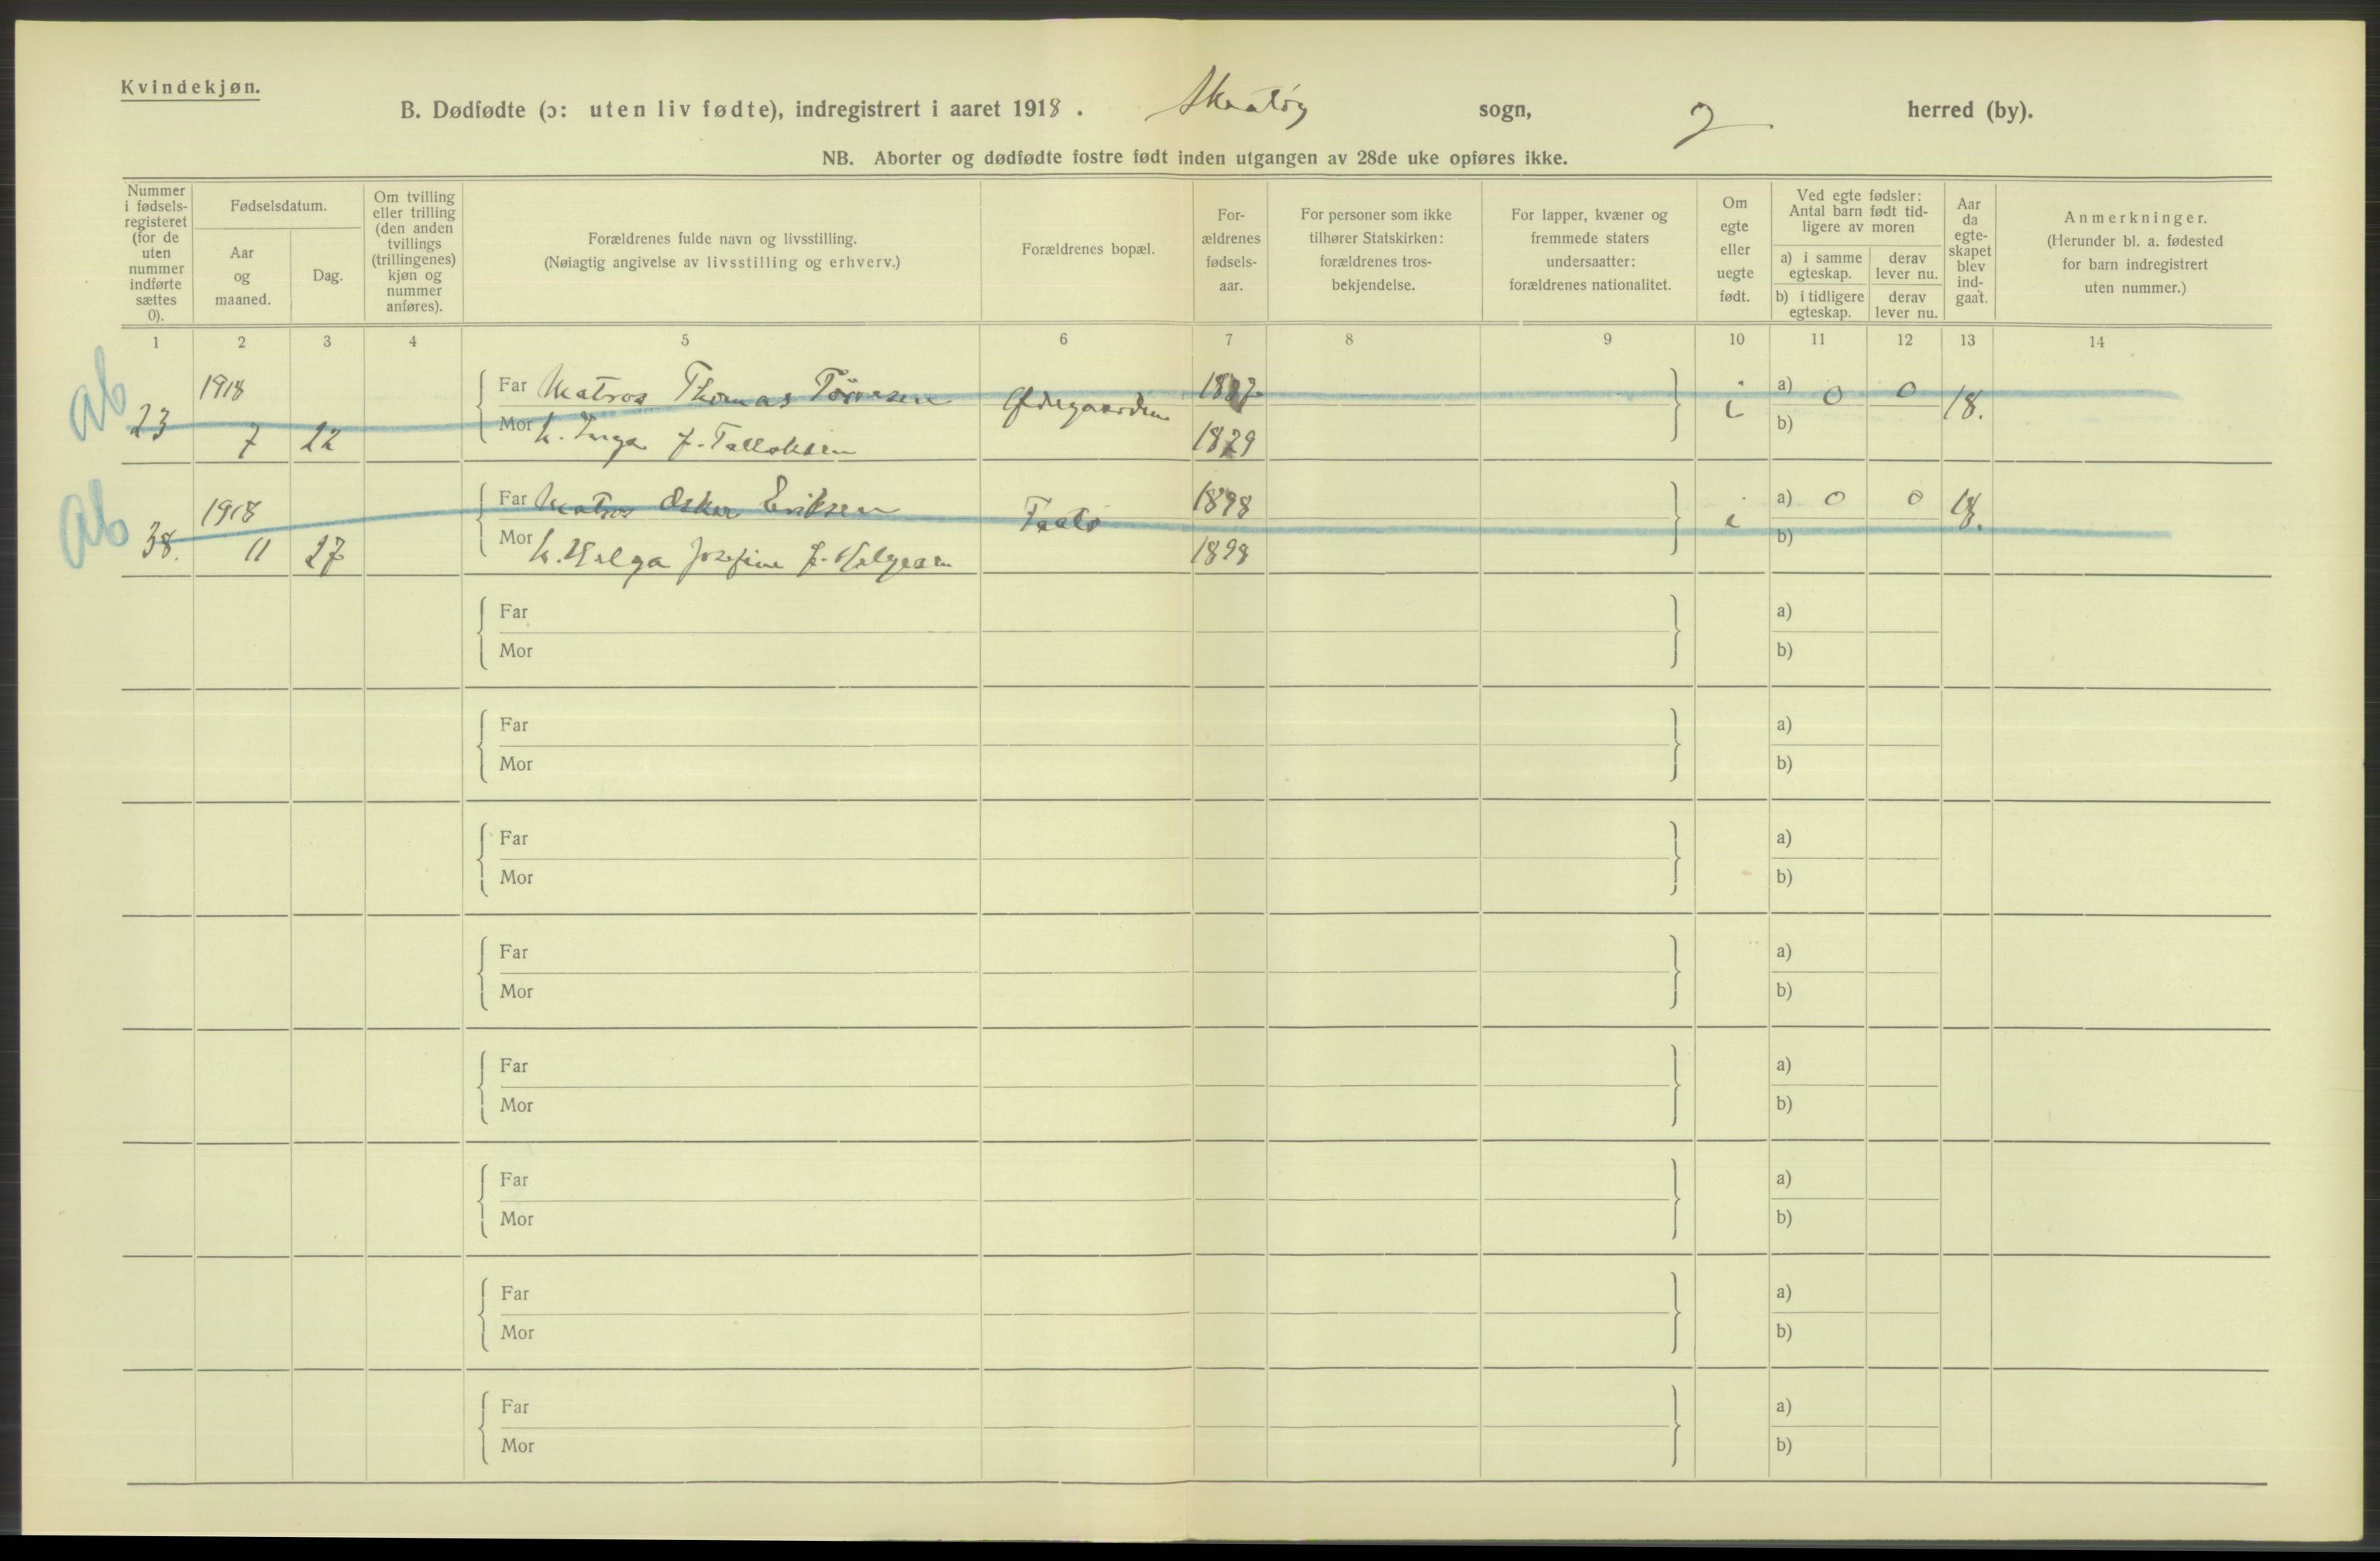 Kvindekjøn.
B. Dødfødte (ɔ: uten liv fødte), indregistrert i aaret 1918. Skaatøy sogn, herred (by).
NB. Aborter og dødfødte fostre født inden utgangen av 28de uke opføres ikke.
Nummer i fødselsregisteret (for de uten nummer indførte sættes 0).
Fødselsdatum.
Aar og maaned.
Dag.
Om tvilling eller trilling (den anden tvillings (trillingenes) kjøn og nummer anføres).
Forældrenes fulde navn og livsstilling.
(Nøiagtig angivelse av livsstilling og erhverv.)
Forældrenes bopæl.
Forældrenes fødselsaar.
For personer som ikke tilhører Statskirken: forældrenes trosbekjendelse.
For lapper, kvæner og fremmede staters undersaatter: forældrenes nationalitet.
Om egte eller uegte født.
Ved egte fødsler: Antal barn født tidligere av moren
a) i samme egteskap.
derav lever nu.
b) i tidligere egteskap.
derav lever nu.
Aar da egteskapet blev indgaat.
Anmerkninger.
(Herunder bl. a. fødested for barn indregistrert uten nummer.)
1 2 3 4 5 6 7 8 9 10 11 12 13 14
ab
23 1918 7 22
Far Matros Thomas Tørresen Ødegaarden a) 0 0 18.
Mor h. Inga f. Tallaksen b)
ab
38. 1918 11 27
Far Matros Oskar Eriksen Taatø 1898 a) 0 0 18.
Mor h. Helga Josefine f. Helgesen 1898 b)
Far a)
Mor b)
Far a)
Mor b)
Far a)
Mor b)
Far a)
Mor b)
Far a)
Mor b)
Far a)
Mor b)
Far a)
Mor b)
Far a)
Mor b)